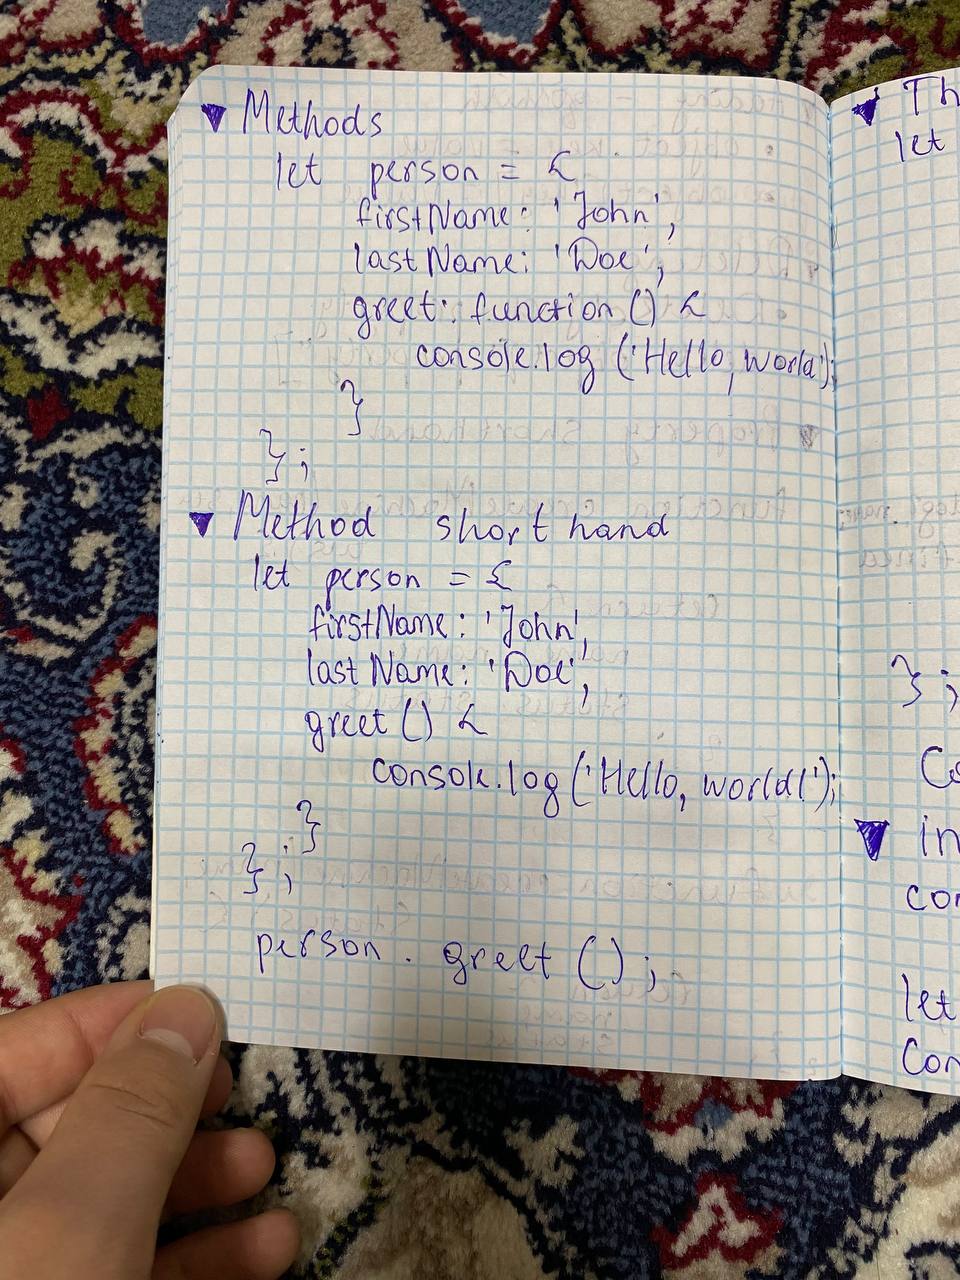 ▼ Methods
let person = {
firstName: 'John',
lastName: 'Doe',
greet: function () {
console.log ('Hello, world');
}
};
▼ Method short hand
let person = {
firstName: 'John',
lastName: 'Doe',
greet () {
console.log ('Hello, world!');
}
};
person . greet () ;
▼ Th
let
};
Co
▼ in
con
let
Con